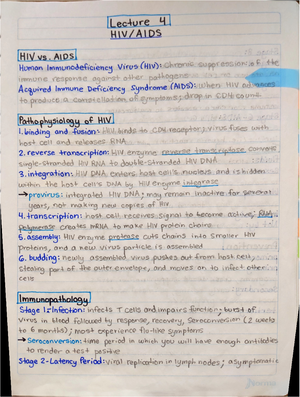 Lecture 4
HIV/AIDS
HIV vs. AIDS
Human Immunodeficiency Virus (HIV): Chronic suppression of the
immune response against other pathogens
Acquired Immune Deficiency Syndrome (AIDS): when HIV advances
to produce a constellation of symptoms; drop in CD4 count
Pathophysiology of HIV
1. binding and fusion: HIV binds to CD4 receptor; virus fuses with
host cell and releases RNA
2. reverse transcription: HIV enzyme reverse transcriptase converts
single-stranded HIV RNA to double-stranded HIV DNA
3. integration: HIV DNA enters host cell's nucleus and is hidden
within the host cell's DNA by HIV enzyme integrase
→ provirus: integrated HIV DNA; may remain inactive for several
years, not making new copies of HIV
4. transcription: host cell receives signal to become active; RNA
polymerase creates mRNA to make HIV protein chains
5. assembly: HIV enzyme protease cuts chains into smaller HIV
proteins, and a new virus particle is assembled
6. budding: newly assembled virus pushes out from host cell,
stealing part of the outer envelope, and moves on to infect other
cells
Immunopathology
Stage 1: Infection: infects T cells and impairs function; burst of
virus in blood followed by response, recovery, Seroconversion (2 weeks
to 6 months); most experience flu-like symptoms
→ Seroconversion: time period in which you will have enough antibodies
to render a test positive
Stage 2-Latency Period: viral replication in lymph nodes; asymptomatic